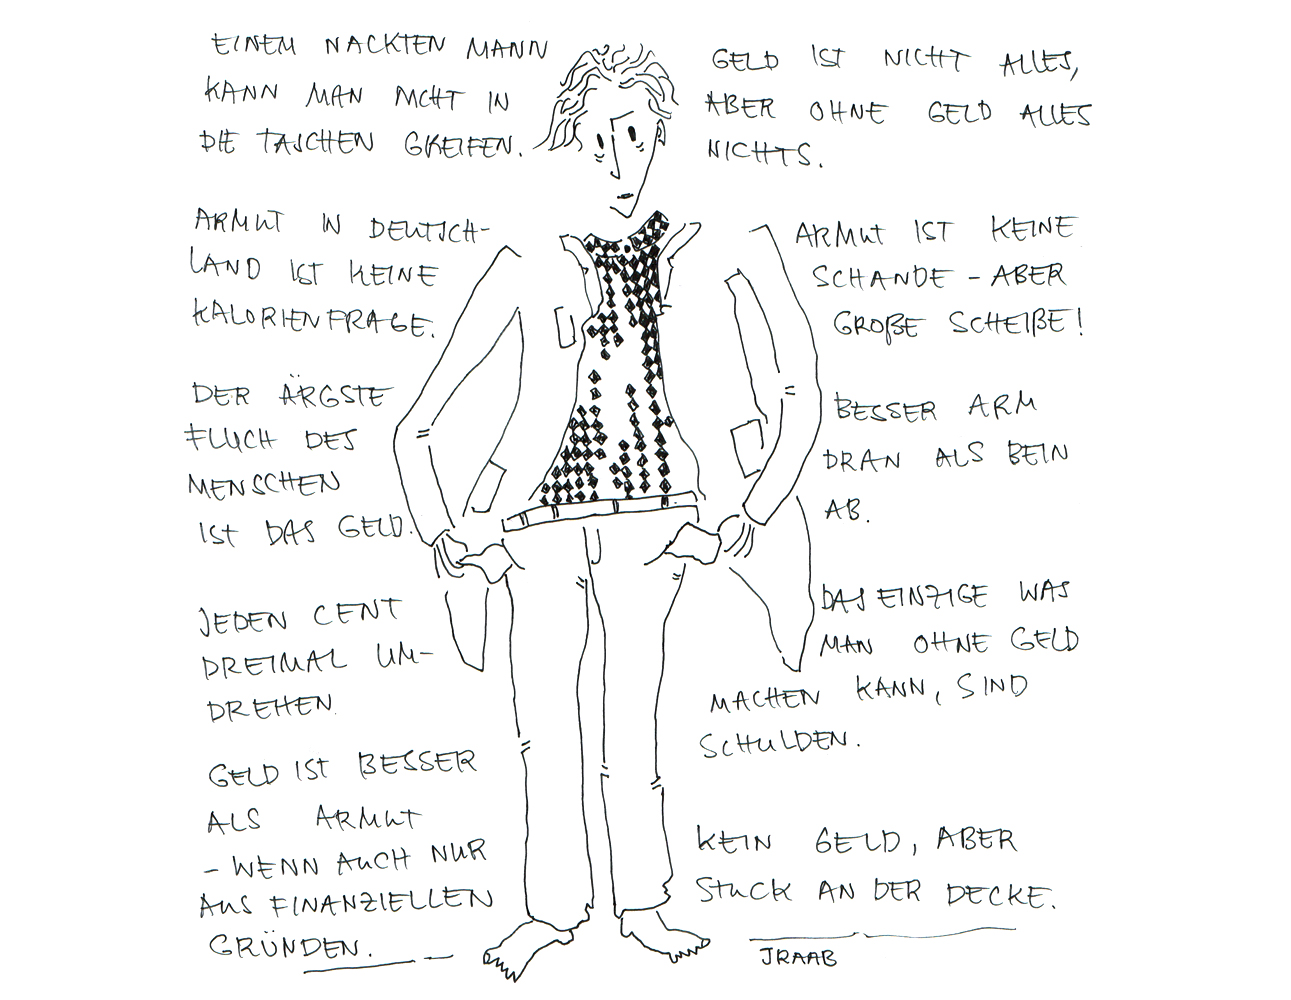 EINEM NACKTEN MANN
KANN MAN NICHT IN
DIE TASCHEN GREIFEN.
ARMUT IN DEUTSCH-
LAND IST KEINE
KALORIENFRAGE.
DER ÄRGSTE
FLUCH DES
MENSCHEN
IST DAS GELD.
JEDEN CENT
DREIMAL UM-
DREHEN.
GELD IST BESSER
ALS ARMUT
- WENN AUCH NUR
AUS FINANZIELLEN
GRÜNDEN.
GELD IST NICHT ALLES,
ABER OHNE GELD ALLES
NICHTS.
ARMUT IST KEINE
SCHANDE - ABER
GROßE SCHEIßE!
BESSER ARM
DRAN ALS BEIN
AB.
DAS EINZIGE WAS
MAN OHNE GELD
MACHEN KANN, SIND
SCHULDEN.
KEIN GELD, ABER
STUCK AN DER DECKE.
JRAAB